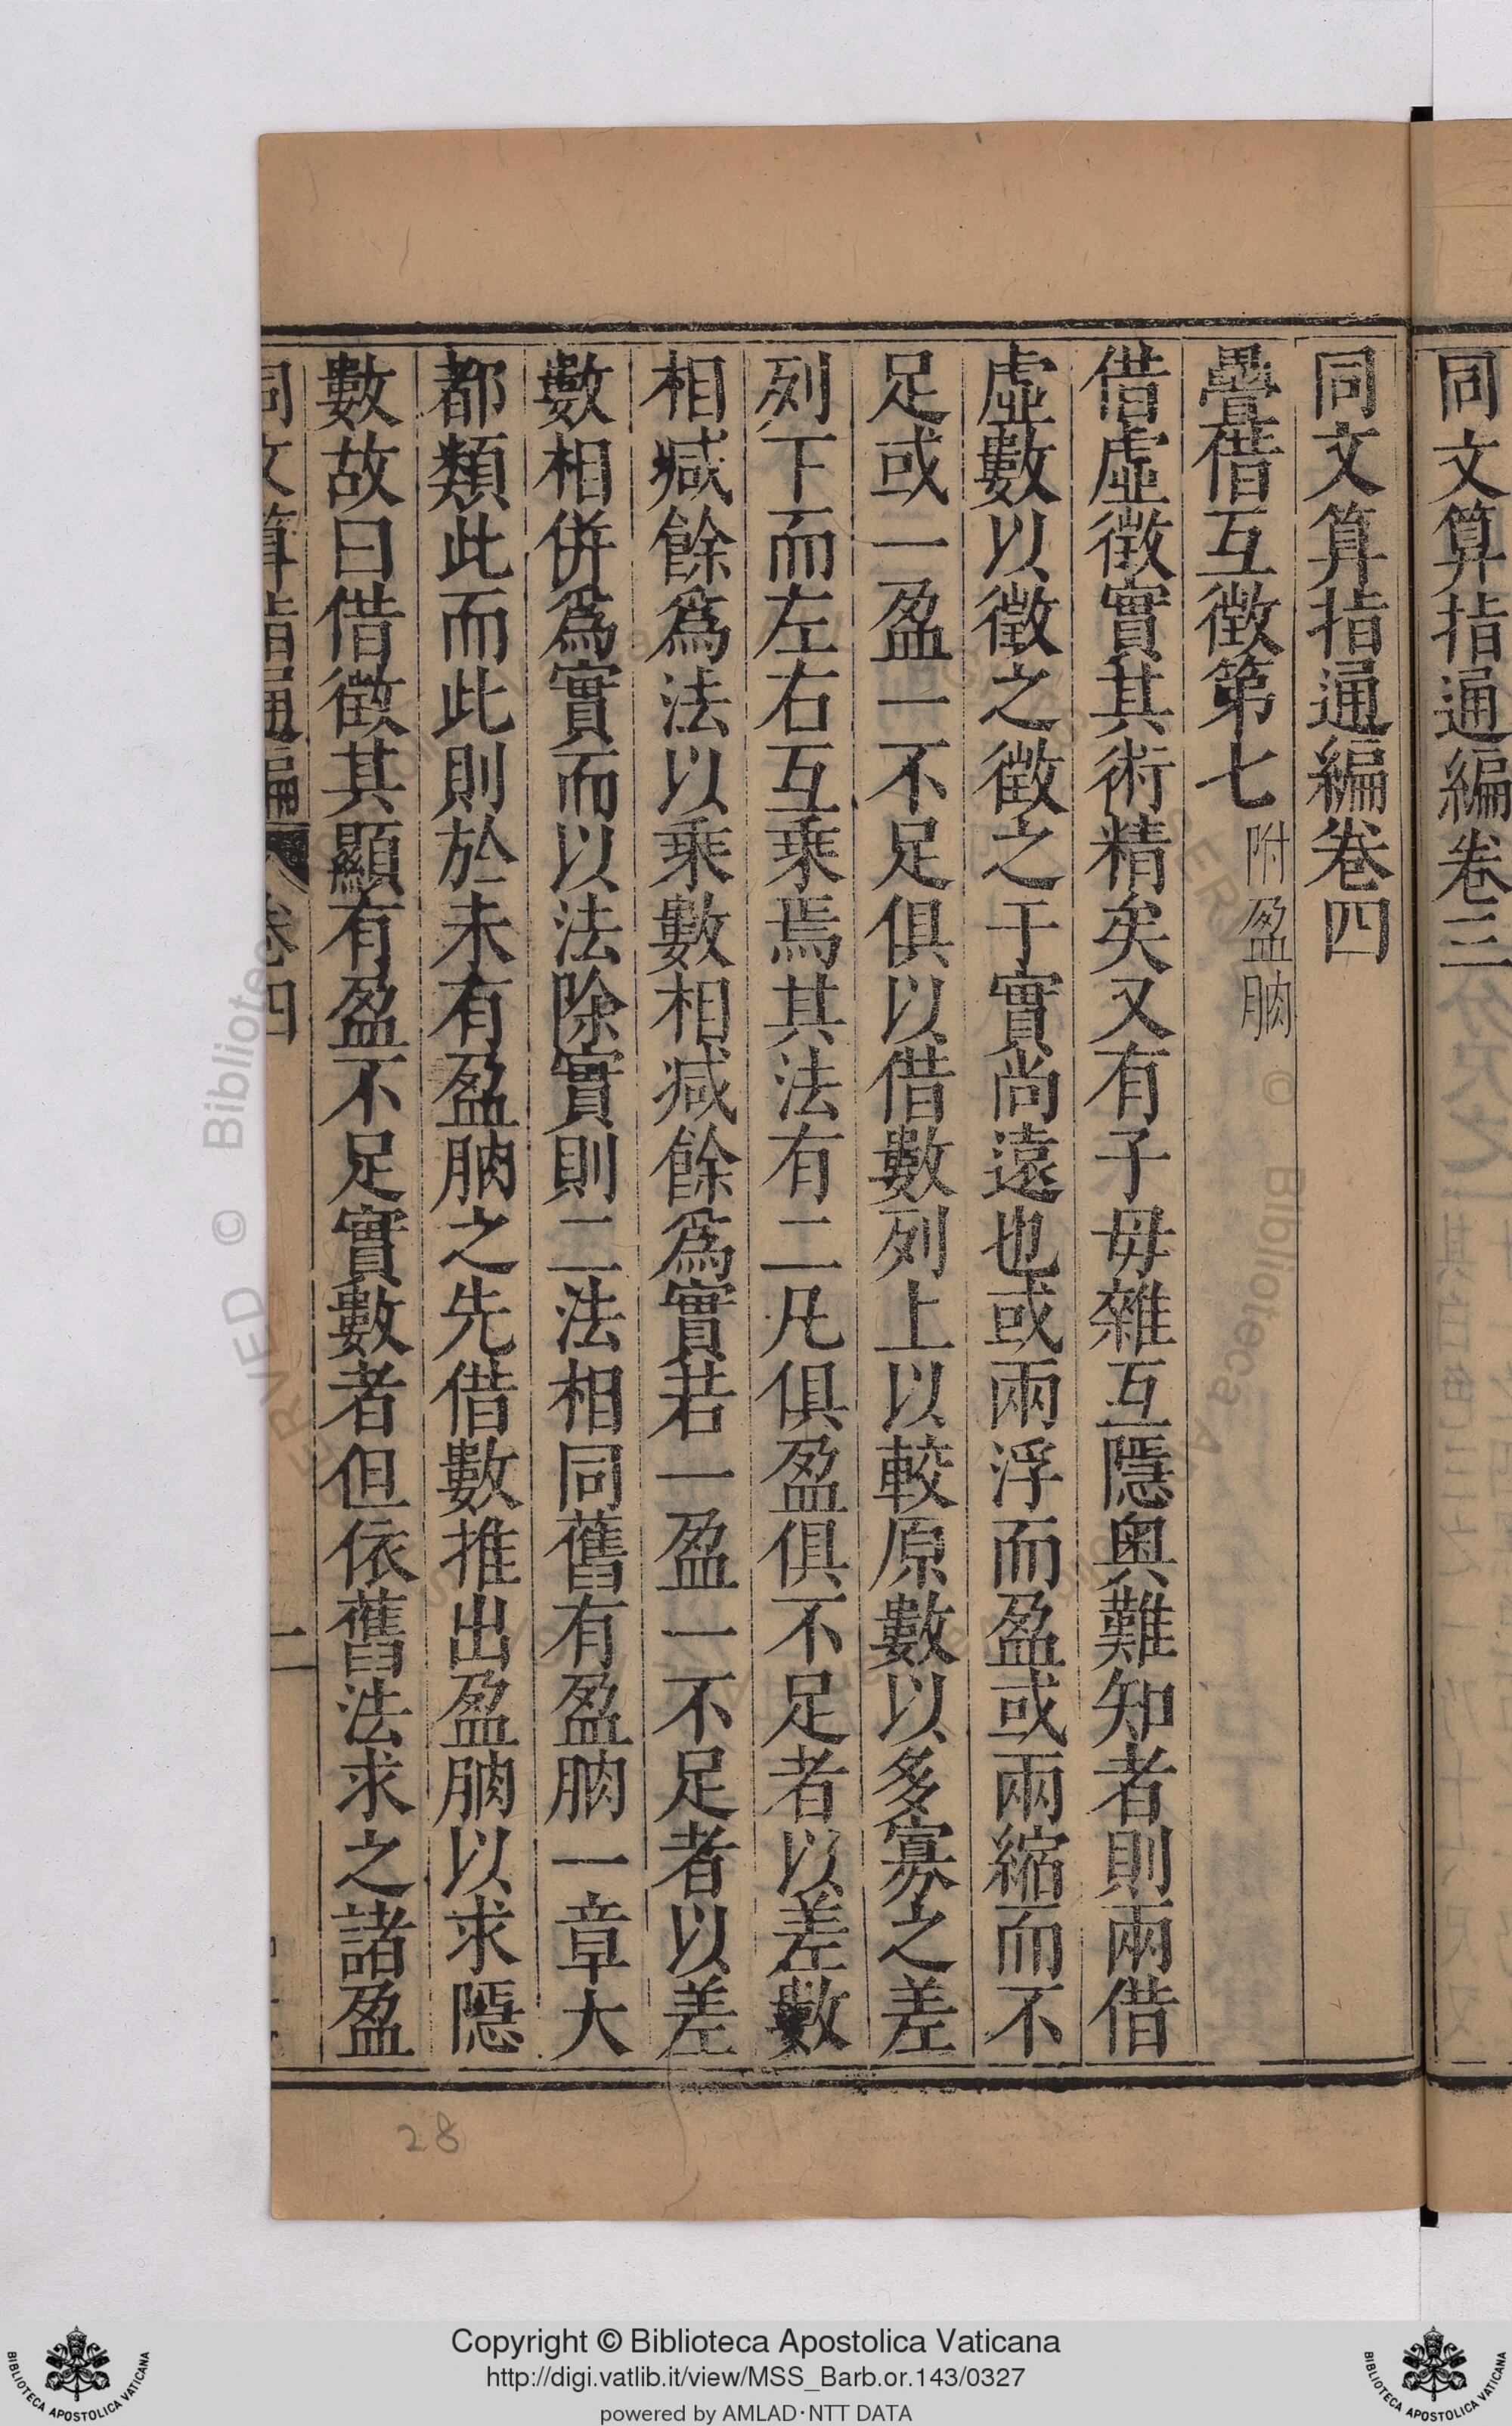 同文算指通編卷三
同文算指通編卷四
疊借互徵第七 附盈朒
借虛徵實其術精矣又有子毋雜互隱奥難知者則兩借
虛數以徵之徵之于實尚遠也或兩浮而盈或兩縮而不
足或一盈一不足俱以借數列上以較原數以多寡之差
列下而左右互乘焉其法有二凡俱盈俱不足者以差數
相减餘爲法以乘數相减餘爲實若一盈一不足者以差
數相併爲實而以法除實則二法相同舊有盈朒一章大
都類此而此則於未有盈朒之先借數推出盈朒以求隱
數故曰借徵其顯有盈不足實數者但依舊法求之諸盈
同文算指通編 卷四 一
28
Copyright © Biblioteca Apostolica Vaticana
http://digi.vatlib.it/view/MSS_Barb.or.143/0327
powered by AMLAD·NTT DATA
BIBLIOTECA APOSTOLICA VATICANA
BIBLIOTECA APOSTOLICA VATICANA